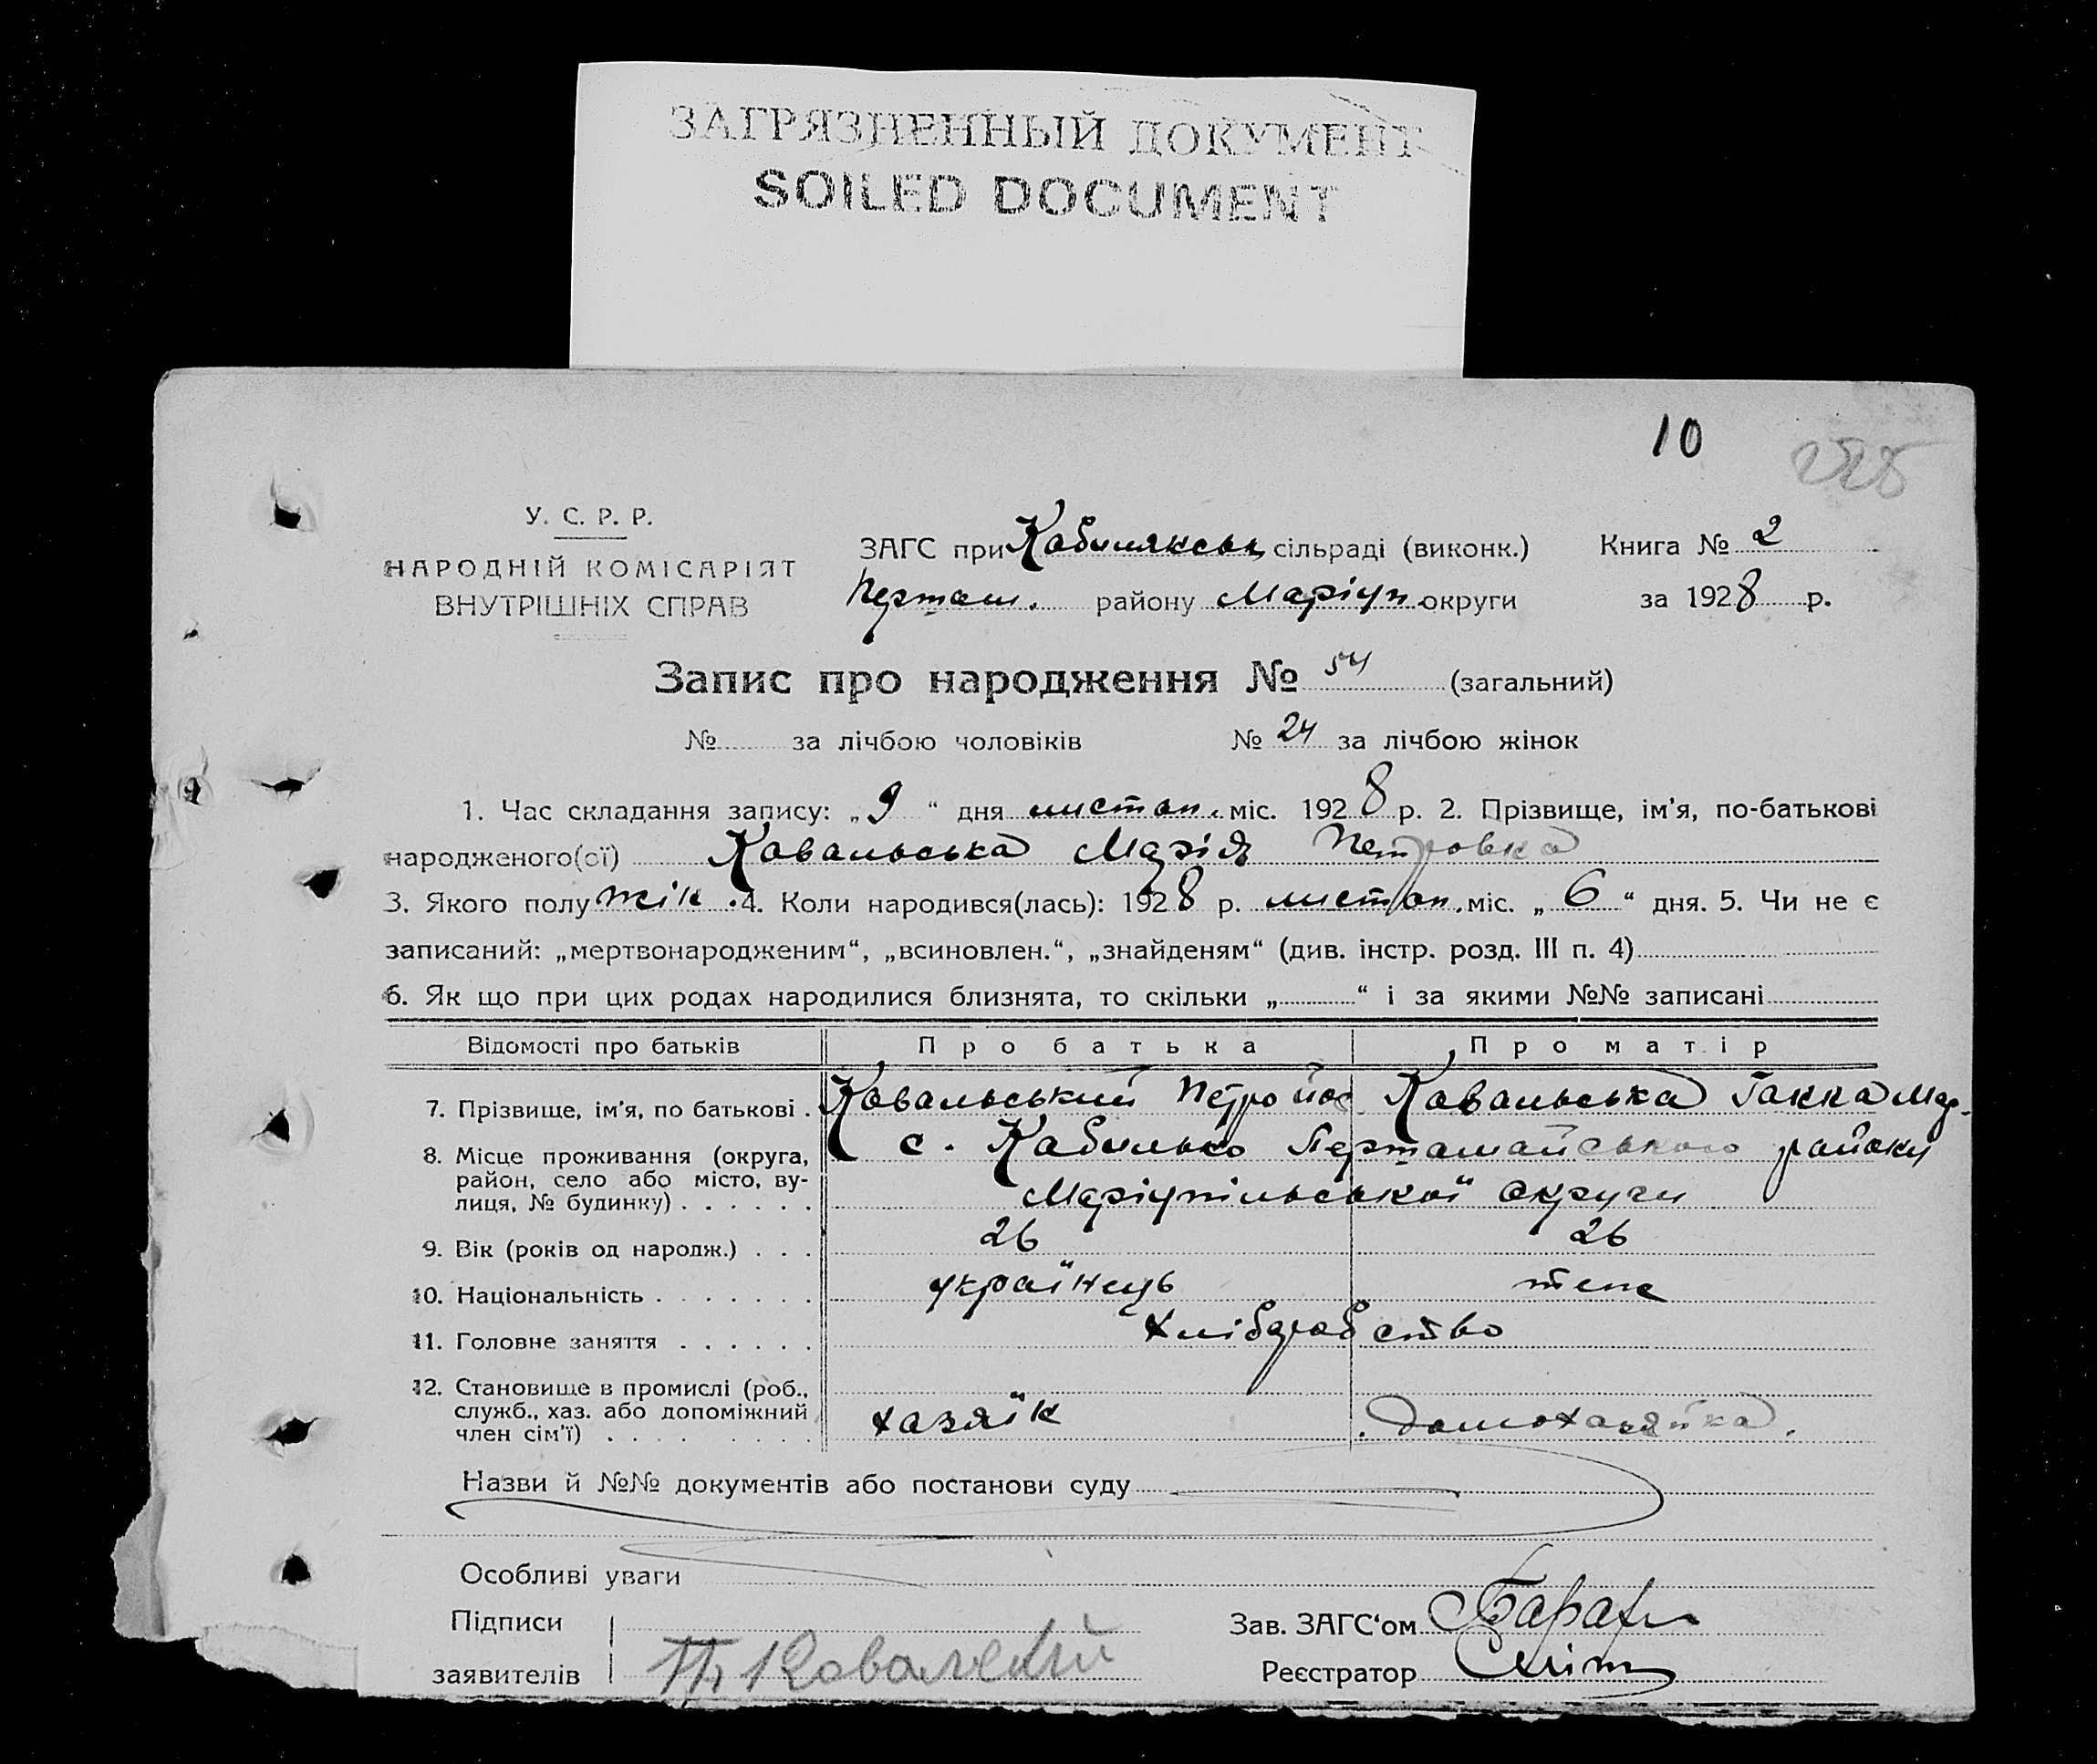 ЗАГРЯЗНЕННЫЙ ДОКУМЕНТ
SOILED DOCUMENT
10
У. С. Р. Р.
НАРОДНІЙ КОМІСАРІЯТ
ВНУТРІШНІХ СПРАВ
ЗАГС при сільраді (виконк.)
району Маріуп. округи
Книга № 2
за 1928 р.
Запис про народження № 54 (загальний)
№ за лічбою чоловіків № 24 за лічбою жінок
1. Час складання запису: „9“ дня листоп. міс. 1928 р. 2. Прізвище, ім'я, по-батькові
народженого(ої) Ковальська Марія Петровна
3. Якого полу жін. 4. Коли народився(лась): 1928 р. листоп. міс. „6“ дня. 5. Чи не є
записаний: „мертвонародженим“, „всиновлен.“, „знайденям“ (див. інстр. розд. III п. 4)
6. Як що при цих родах народилися близнята, то скільки „ “ і за якими №№ записані
Відомості про батьків Про батька Про матір
7. Прізвище, ім'я, по батькові . Ковальський Петро Йос Ковальська Ганна Мар.
8. Місце проживання (округа,
район, село або місто, ву-
лиця, № будинку) . . . . . .
с. району
Маріупільської округи
9. Вік (років од народж.) . . . 26 26
10. Національність . . . . . . . українець теж
11. Головне заняття . . . . . . хлібороб ство
12. Становище в промислі (роб.,
служб., хаз. або допоміжний
член сім'ї) . . . . . . . . .
хазяїн домохазяйка.
Назви й №№ документів або постанови суду
Особливі уваги
Підписи
заявителів
Зав. ЗАГС'ом
Реєстратор